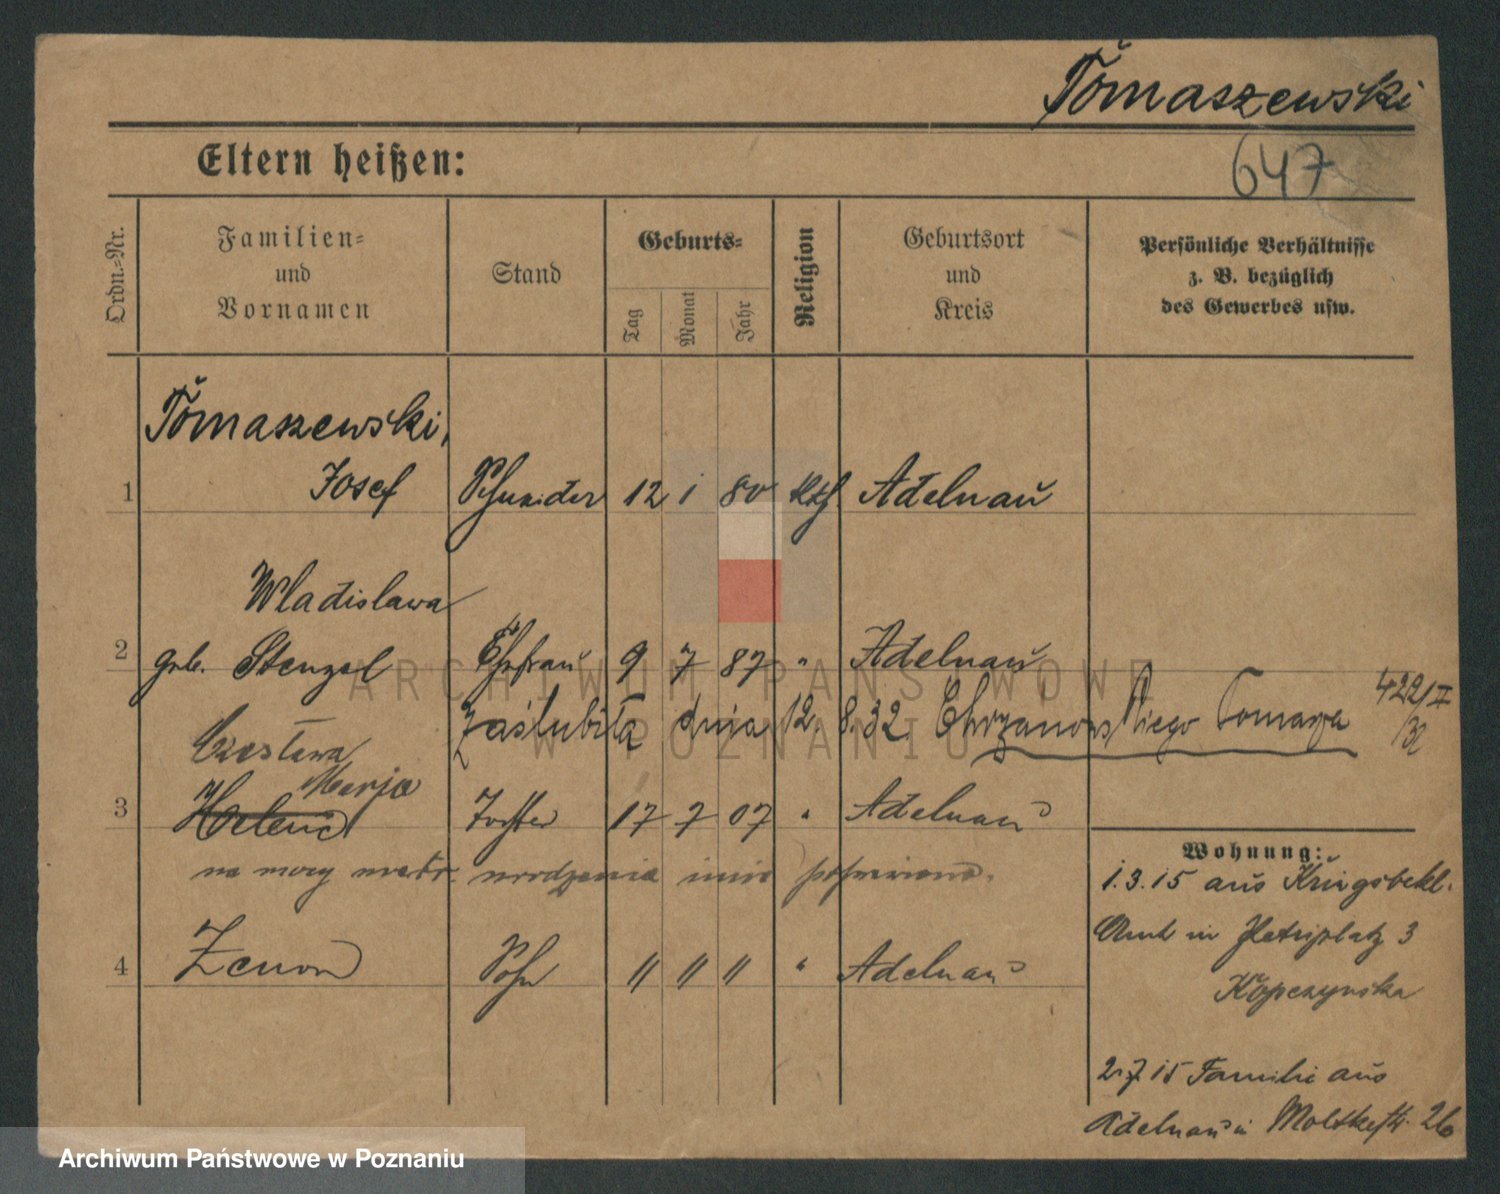 Tomaszewski
Eltern heißen:
647
Ordn.=Nr.
Familien=
und
Vornamen
Stand
Geburts=
Tag
Monat
Jahr
Religion
Geburtsort
und
Kreis
Persönliche Verhältnisse
z. B. bezüglich
des Gewerbes usw.
Tomaszewski,
1 Josef Schneider 12 1 80 kth. Adelnau
Wladislawa
2 geb. Stenzel Ehefrau 9 7 87 " Adelnau
zaślubiła dnia 12. 8. 32 Chrzanowskiego Tomasza 422/II/32
Czesława
Marja
3 Helena Tochter 17 7 07 " Adelnau
na mocy metr. urodzenia imię poprawiono.
4 Zenon Sohn " " " " Adelnau
Wohnung:
1.3.15 aus Kriegsbekl.
Amt in Petriplatz 3
Kopczynska
2.7.15 Familie aus
Adelnau in Moltkestr. 26
ARCHIWUM PAŃSTWOWE
W POZNANIU
Archiwum Państwowe w Poznaniu